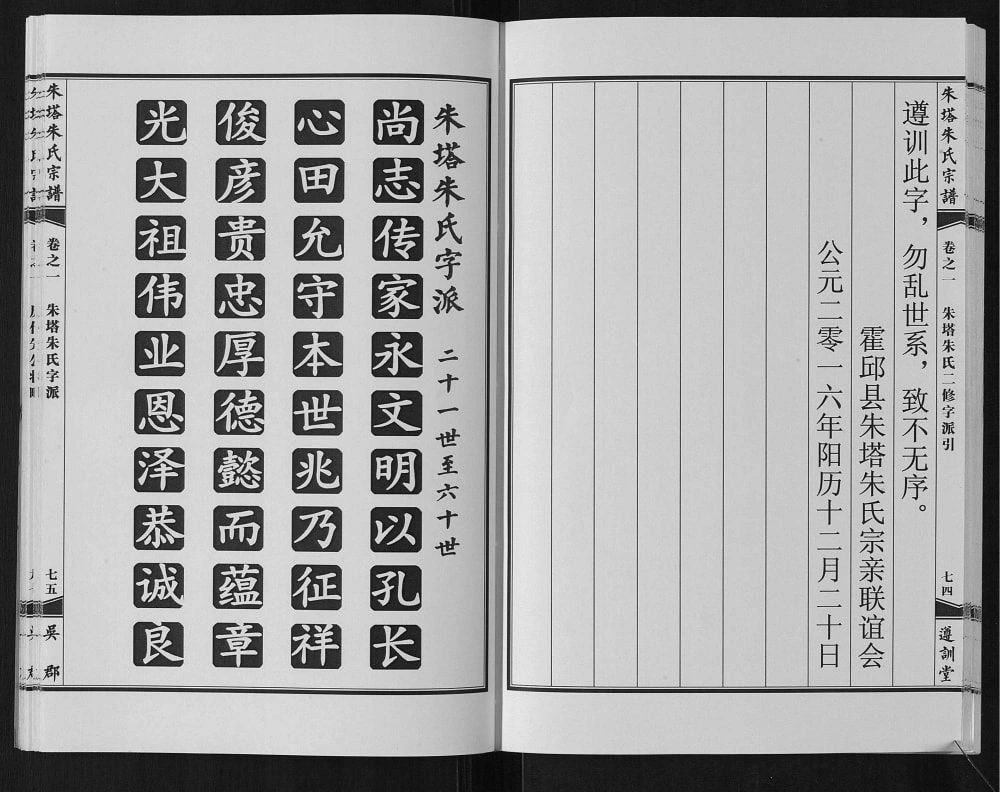 朱塔朱氏宗譜
卷之一
朱塔朱氏二修字派引
七四
遵訓堂
遵训此字，勿乱世系，致不无序。
霍邱县朱塔朱氏宗亲联谊会
公元二零一六年阳历十二月二十日
朱塔朱氏字派 二十一世至六十世
尚志传家永文明以孔长
心田允守本世兆乃征祥
俊彦贵忠厚德懿而蕴章
光大祖伟业恩泽恭诚良
朱塔朱氏宗譜
卷之一
朱塔朱氏字派
七五
吳郡